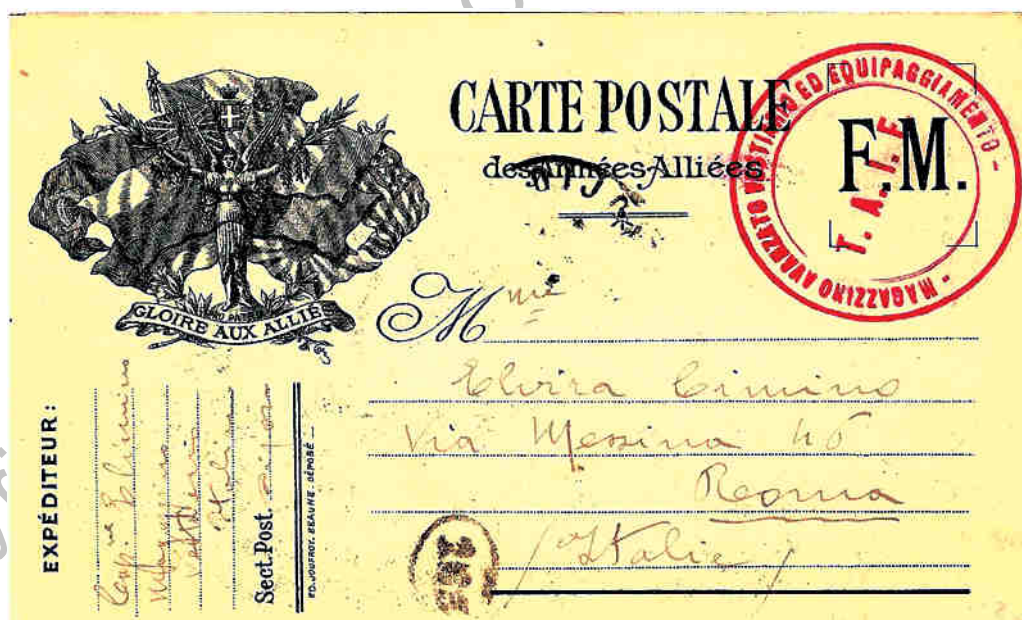 CARTE POSTALE
des Armées Alliées
F.M.
- MAGAZZINO AVANZATO VESTIARIO ED EQUIPAGGIAMENTO -
T. A. I. F.
PRO PATRIA
GLOIRE AUX ALLIÉS
Mme
Elvira Cimino
Via Messina 45
Roma
Italie
EXPÉDITEUR:
Cimino
Sect. Post.
ED. JOUFFROY, BEAUNE - DÉPOSÉ